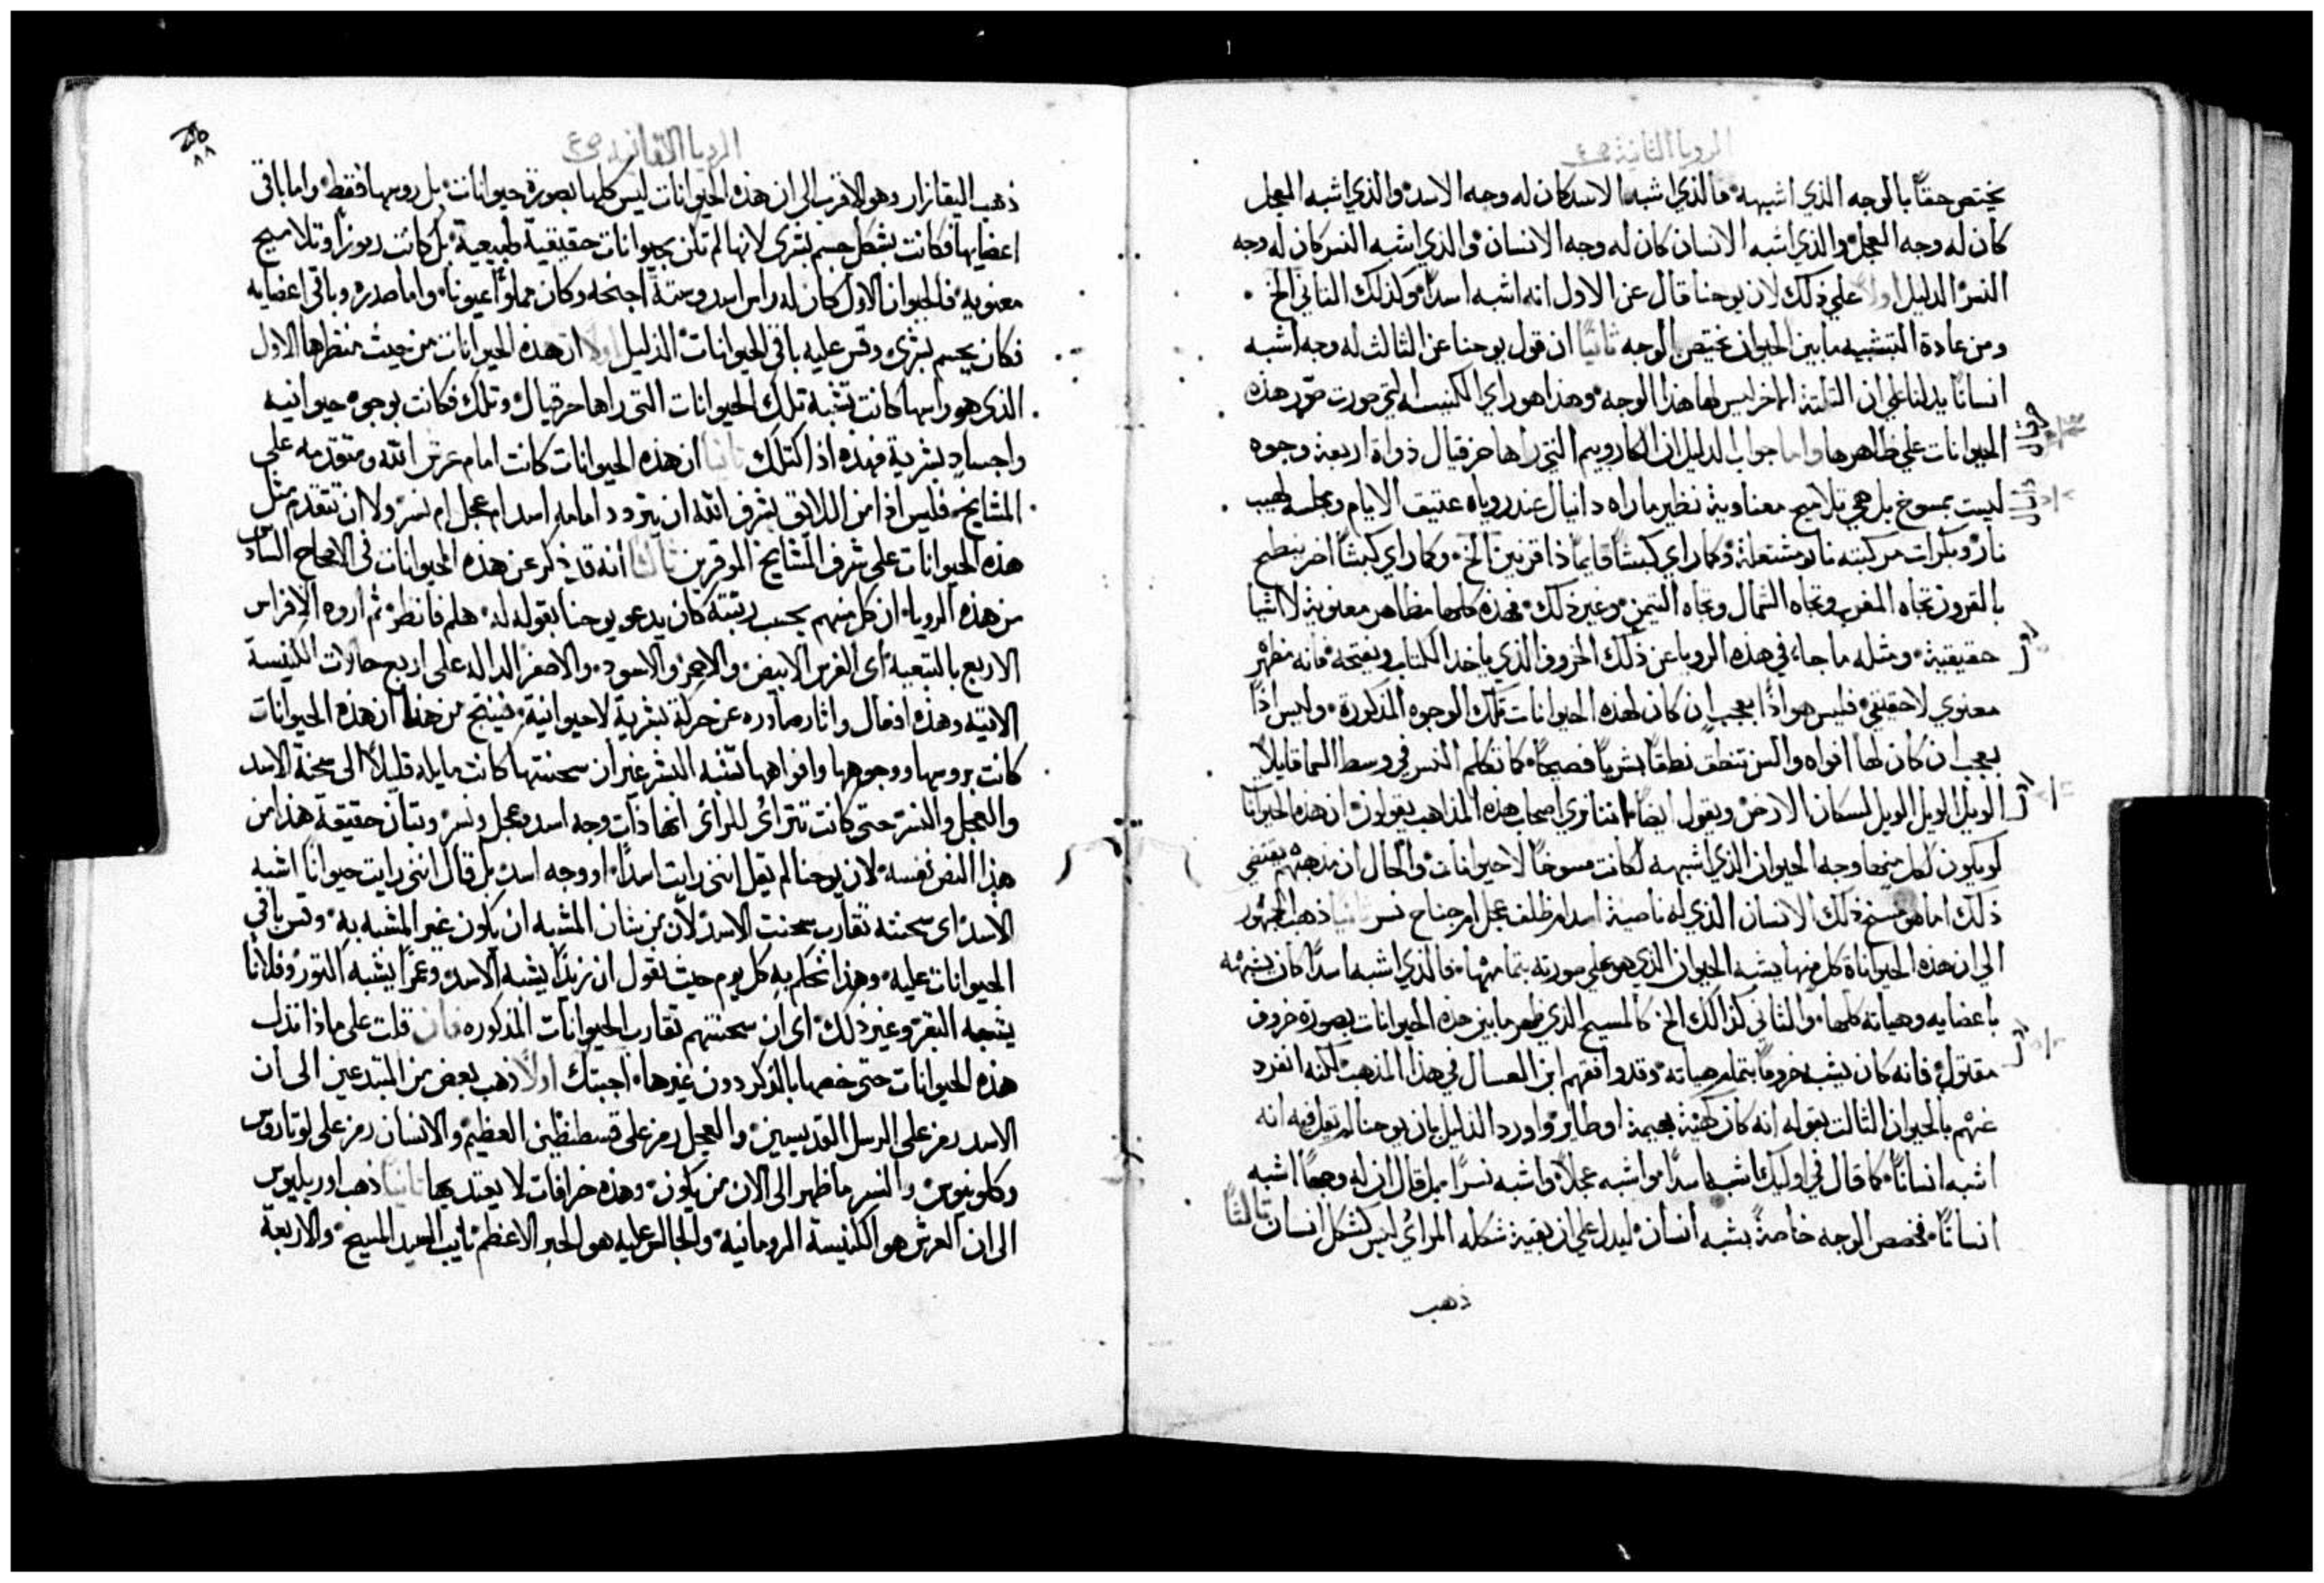 الرويا الثانية ص٤
يختص حقًا بالوجه الذي اشبهه فالذي اشبه الاسد كان له وجه الاسد والذي اشبه العجل
كان له وجه العجل والذي اشبه الانسان كان له وجه الانسان والذي اشبه النسر كان له وجه
النسر الدليل اولًا علي ذلك لان يوحنا قال عن الاول انه اشبه اسدًا وكذلك الثاني الخ
ومن عادة التشبيه ما بين الحيوان يختص بالوجه ثانيًا ان قول يوحنا عن الثالث له وجه اشبه
انسانًا يدلنا علي ان الثلثة الاخر ليس لها هذا الوجه وهذا هو راي الكنيسه التي صورت صور هذه
الحيوانات علي ظاهرها واما جواب الدليل ان الكاروبيم التي راها حزقيال ذواة اربعة وجوه
حزقيال
ليست بمسوخ بل هي تلاميح معناوية نظير ما راه دانيال عند روياه عتيق الايام ومجلسه لهيب
دانيال
نار وبكرات مركبته نار مشتعلة وكما راي كبشًا قايمًا ذا قرنين الخ وكما راي كبشًا اخر ينطح
بالقرون تجاه المغرب وتجاه الشمال وتجاه التيمن وغير ذلك فهذه كلها مظاهر معنوية لا اشيا
حقيقية ومثله ما جاء في هذه الرويا عن ذلك الخروف الذي ياخذ الكتاب ويفتحه فانه مظهر
معنوي لا حقيقي فليس هو اذًا بعجب ان كان لهذه الحيوانات تلك الوجوه المذكورة وليس اذًا
بعجب ان كان لها افواه والسن تنطق نطقًا بشريًا فصيحًا كما تكلم النسر في وسط السما قايلًا
الويل الويل الويل لسكان الارض ويقول ايضًا اننا نري اصحاب هذه المذاهب يقولون ان هذه الحيوانات
لو يكون لكل منها وجه الحيوان الذي اشبهه لكانت مسوخًا لا حيوانات والحال ان مذهبهم يقتضي
ذلك اما هو مسخ ذلك الانسان الذي له ناصية اسد ام ظلف عجل ام جناح نسر ثانيًا ذهب الجمهور
الي ان هذه الحيواناة كل منها يشبه الحيوان الذي هو علي صورته بتمامها فالذي اشبه اسدًا كان يشبهه
باعضايه وهياته كلها والثاني كذالك الخ كالمسيح الذي ظهر ما بين هذه الحيوانات بصورة خروف
مقتول فانه كان يشبه خروفًا بتمام هياته وقد وافقهم ابن العسال في هذا المذهب لكنه انفرد
عنهم بالحيوان الثالث بقوله انه كان كهيئة بهيمة او طاير واورد الدليل بان يوحنا لم يقل فيه انه
اشبه انسانًا كما قال في اوليك اشبه اسدًا واشبه عجلًا واشبه نسرًا بل قال ان له وجهًا اشبه
انسانًا فخصص الوجه خاصةً بشبه انسان ليدل علي ان بقية شكله المرائي ليس كشكل انسان ثالثًا
ذهب
الرويا الثانيه ص٤
٨٨
ذهب اليقازار وهو الاقرب الى ان هذه الحيوانات ليس كلها بصورة حيوانات بل روسها فقط واما باقي
اعضايها فكانت بشكل جسم بشرى لانها لم تكن بحيوانات حقيقية طبيعية بل كانت رموزًا وتلاميح
معنويه فالحيوان الاول كان له راس اسد وستة اجنحه وكان مملوًا عيونا واما صدره وباقي اعضايه
فكان بجسم بشرى وقس عليه باقى الحيوانات الدليل اولًا ان هذه الحيوانات من حيث منظرها الاول
الذى هو راسها كانت تشبه تلك الحيوانات التى راها حزقيال وتلك فكانت بوجوه حيوانيه
واجساد بشرية فهذه اذًا كتلك ثانيًا ان هذه الحيوانات كانت امام عرش الله ومتقدمه على
المشايخ فليس اذًا من اللايق بشرف الله ان يتردد امامه اسد ام عجل ام نسر ولا ان تتقدم مثل
هذه الحيوانات على شرف المشايخ الموقرين ثالثًا انه قد ذكر عن هذه الحيوانات فى الاصحاح السادس
من هذه الرويا ان كل منهم بحسب رتبته كان يدعو يوحنا بقوله له هلم فانظر ثم اروه الافراس
الاربع بالتبعية اى الفرس الابيض والاحمر والاسود والاصفر الداله على اربع حالات الكنيسة
الاتيه وهذه افعال واثار صادره عن حركة بشرية لا حيوانية فينتج من هذا ان هذه الحيوانات
كانت بروسها ووجوهها وافواهها تشبه البشر غير ان سحنتها كانت مايله قليلًا الى سحنة الاسد
والعجل والنسر حتى كانت تترائى للرائى انها ذات وجه اسد وعجل ونسر وبيان حقيقة هذا من
هذا النص نفسه لان يوحنا لم يقل اننى رايت اسدًا او وجه اسد بل قال اننى رايت حيوانًا اشبه
الاسد اى سحنته تقارب سحنت الاسد لان من شان المشبه ان يكون غير المشبه به وقس باقي
الحيوانات عليه وهذا نتكلم به كل يوم حيث نقول ان زيدًا يشبه الاسد وعمرًا يشبه الثور وفلانًا
يشبه البقر وغير ذلك اى ان سحنتهم تقارب الحيوانات المذكوره فان قلت على ماذا تدل
هذه الحيوانات حتى خصها بالذكر دون غيرها اجبتك اولًا ذهب بعض من المبتدعين الى ان
الاسد رمز على الرسل القديسين والعجل رمز على قسطنطين العظيم والانسان رمز على لوتاروس
وكلوينوس والنسر ما ظهر الى الان من يكون وهذه خرافات لا يعتد بها ثانيًا ذهب اوريليوس
الى ان العرش هو الكنيسة الرومانيه والجالس عليه هو الحبر الاعظم نايب السيد المسيح والاربعة